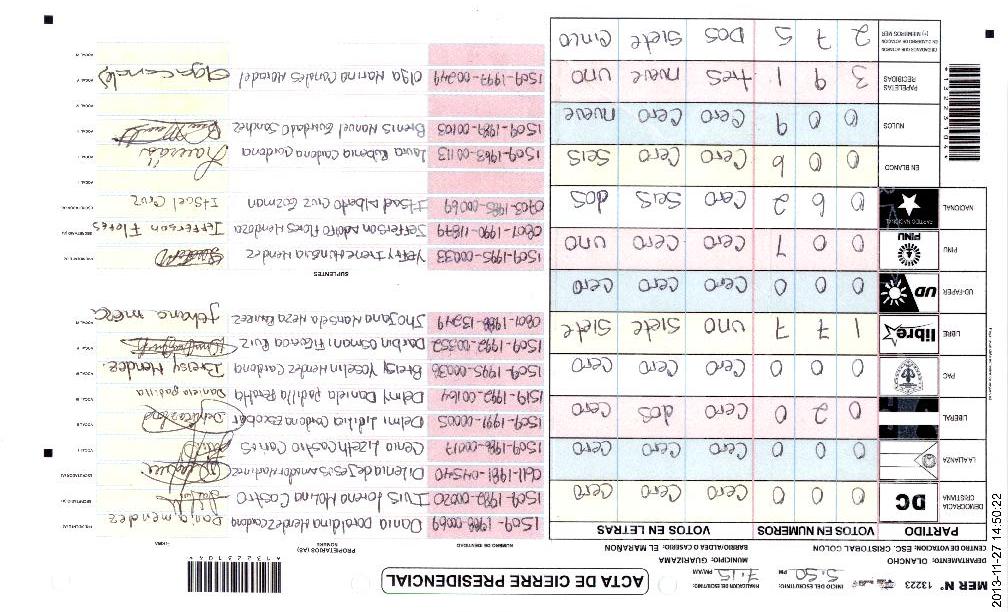 ACTA DE CIERRE PRESIDENCIAL
MER N° 13223
INICIO DEL ESCRUTINIO: 5:50 PM
FINALIZACION DE ESCRUTINIO: 7:15 PM/AM
DEPARTAMENTO: OLANCHO
MUNICIPIO: GUARIZAMA
CENTRO DE VOTACION: ESC. CRISTOBAL COLON
BARRIO/ALDEA O CASERIO: EL MARAÑON
PARTIDO VOTOS EN NUMEROS VOTOS EN LETRAS
DEMOCRACIA CRISTIANA DC 0 0 0 Cero Cero Cero
LA ALIANZA 0 0 0 Cero Cero Cero
LIBERAL 0 2 0 Cero dos Cero
PAC 0 0 0 Cero Cero Cero
LIBRE libre 1 7 7 Uno Siete Siete
UD-FAPER UD 0 0 0 Cero Cero Cero
PINU PINU 0 0 1 Cero Cero uno
NACIONAL PARTIDO NACIONAL 0 6 2 Cero Seis dos
EN BLANCO 0 0 6 Cero Cero Seis
NULOS 0 0 9 Cero Cero nueve
PAPELETAS RECIBIDAS 3 9 1 tres nueve uno
2 7 5 Dos Siete Cinco
NUMERO DE IDENTIDAD PROPIETARIOS (AS) NOMBRE FIRMA
1509-1988-00069 Dania Donaldina Hernandez Cardona Dania mendez
1509-1982-00020 Iris Lorena Molina Castro
1509-1986-00017 Cenia Lizeth Castro Cortes
1509-1991-00005 Delmi Lidilia Cardona Escobar
1519-1992-00164 Delmy Daniela Padilla Peralta Daniela padilla
1509-1995-00036 Breisy Yoselin Mendez Cardona Breisy Mendez.
1509-1992-00352 Darbin Osmani Figueroa Ruiz
0801-1988-13249 Jhojana Marisela Meza Ramirez Johana meza
SUPLENTES
1509-1995-00033 Yeffry Irene Munguia Mendez
0801-1990-11879 Jefferson Adolfo Flores Mendoza Jefferson Flores
0703-1985-00069 Itsael Alberto Cruz Guzman Itsael Cruz
1509-1963-00113 Laura Rubenia Cardona Cardona
1509-1989-00103 Brenis Manuel Guardado Sanchez
1509-1997-00249 Olga Marina Canales Maradel Olga Canales
13223104
13223104
2013-11-27 14:50:22